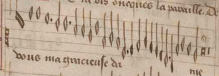 vis onques la pareille De
vous ma gracieuse da
me